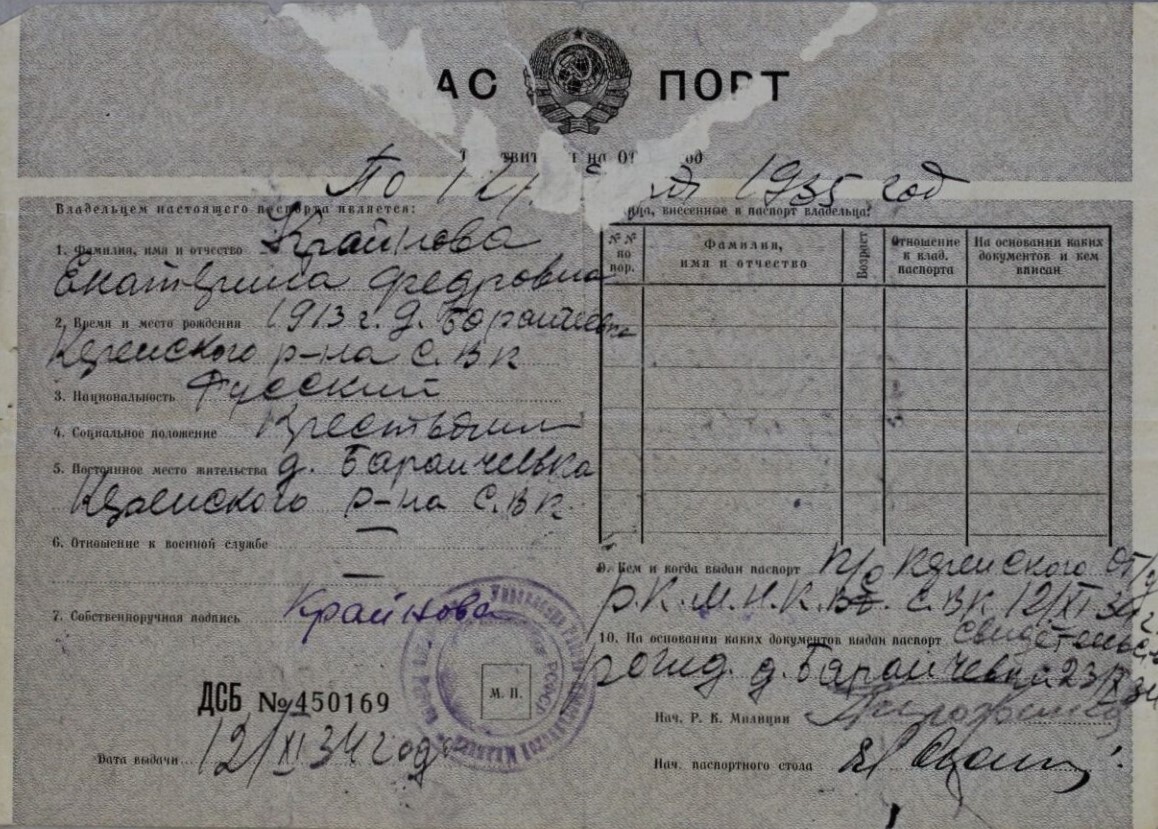 АС ПОРТ
По 12/ 1935 год
Владельцем настоящего паспорта является:
1. Фамилия, имя и отчество Крайнова
Екатерина Федровна
2. Время и место рождения 1913 г. д. Бараичевка
Керенского р-на С.В.К
3. Национальность Русский
4. Социальное положение
5. Постоянное место жительства д. Бараичевка
Керенского р-на С.В.К.
6. Отношение к военной службе —
—
7. Собственноручная подпись Крайнова
ДСБ № 450169
Дата выдачи 12/XI 34 года
М. П.
лица, внесенные в паспорт владельца:
№ № по пор.
Фамилия, имя и отчество
Возраст
Отношение к влад. паспорта
На основании каких документов и кем вписан
9. Кем и когда выдан паспорт п/о Керенского
Р.К.М.Н.К.В. С.В.К 12/XI 34 г.
10. На основании каких документов выдан паспорт
рожд. д. Бараичевка 23/X 34
Нач. Р. К. Милиции
Нач. паспортного стола